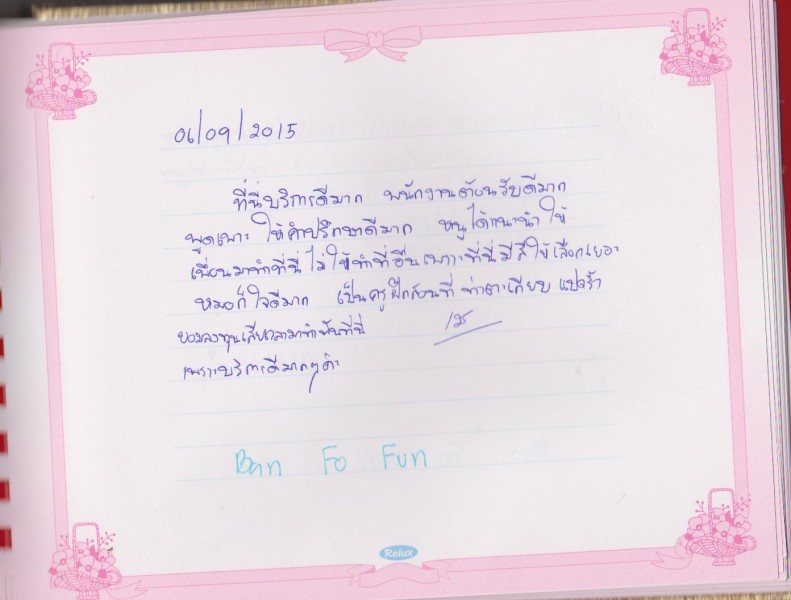 06/09/2015
ที่นี่บริการดีมาก พนักงานต้อนรับดีมาก
พูดเพราะ ให้คำปรึกษาดีมาก หนูได้แนะนำ ให้
เพื่อนมาทำที่นี่ ไม่ให้ทำที่อื่นเพราะที่นี่มีสีให้เลือกเยอะ
หมอก็ใจดีมาก เป็นครูฝึกสอนที่ ท่าตะเกียบ แปดริ้ว
ยอมลงทุนเสียเวลามาทำฟันที่นี่
เพราะบริการดีมากๆค่ะ
Ban Fo Fun
Relux